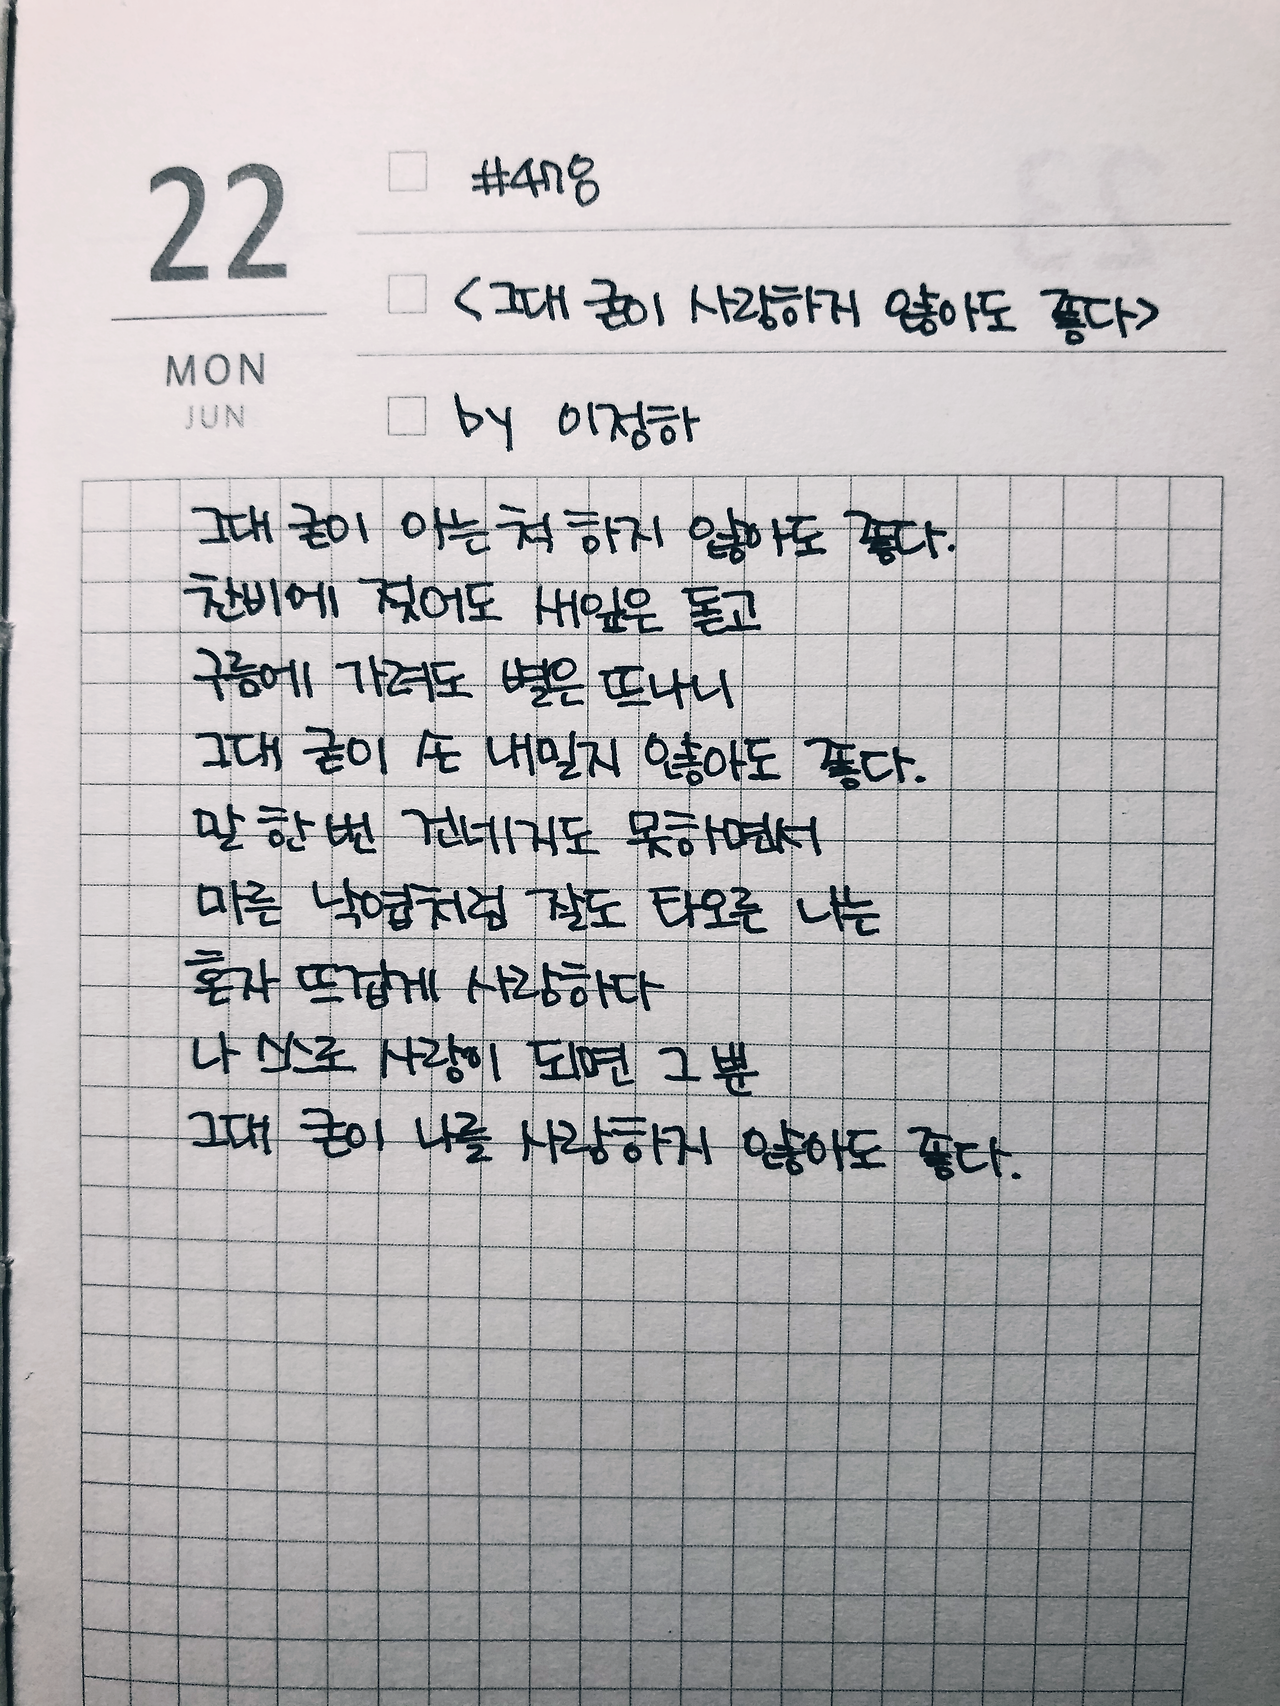 22
MON
JUN
#478
<그대 굳이 사랑하지 않아도 좋다>
by 이정하
그대 굳이 아는 척 하지 않아도 좋다.
찬비에 젖어도 새잎은 돋고
구름에 가려도 별은 뜨나니
그대 굳이 손 내밀지 않아도 좋다.
말 한 번 건네지도 못하면서
마른 낙엽처럼 잘도 타오른 나는
혼자 뜨겁게 사랑하다
나 스스로 사랑이 되면 그 뿐
그대 굳이 나를 사랑하지 않아도 좋다.